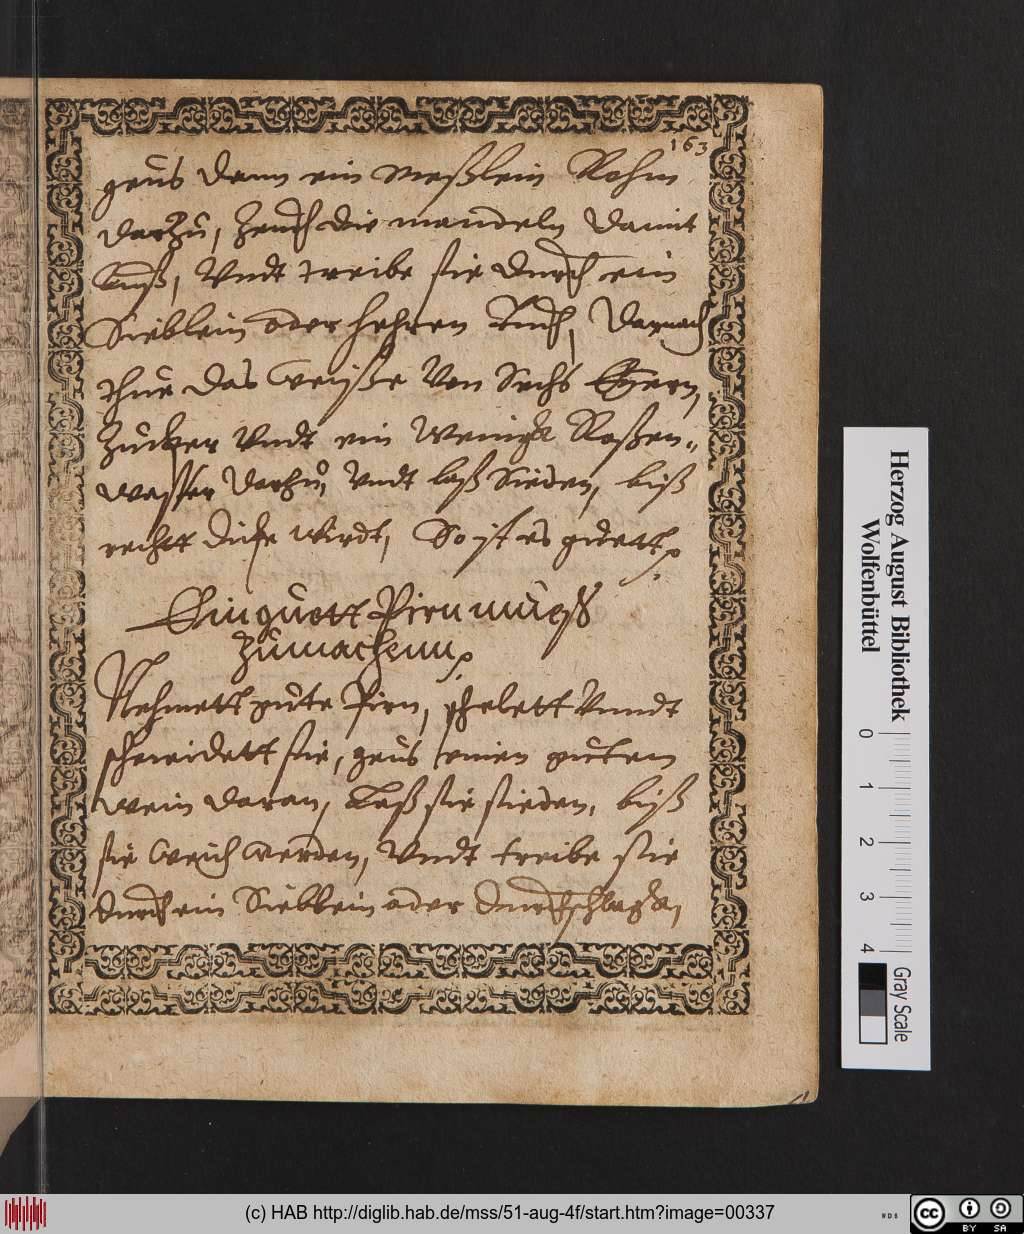 163
geus dann ein meßlein Rohm
darzu, Zeuch die mandeln damit
Auß, Vndt treibe sie durch ein
Sieblein oder hehren Tuch, Darnach
thue das weiße Von Sechs Eyern,
Zucker Vndt ein Wenigk Roßen„
wasser darzu, Vndt laß Sieden, biß
recht dicke wirdt, So ist es guett
Ein guett Pirn mueß
Zumachenn
Nehmett gute Pirn, schelett Vnndt
schneidett sie, geus einen guten
wein daran, Laß sie sieden, biß
sie weich werden, Vndt treibe sie
durch ein Sieblein oder durchschlagk,
Herzog August Bibliothek
Wolfenbüttel
0 1 2 3 4
Gray Scale
(c) HAB http://diglib.hab.de/mss/51-aug-4f/start.htm?image=00337
WDB
cc BY SA